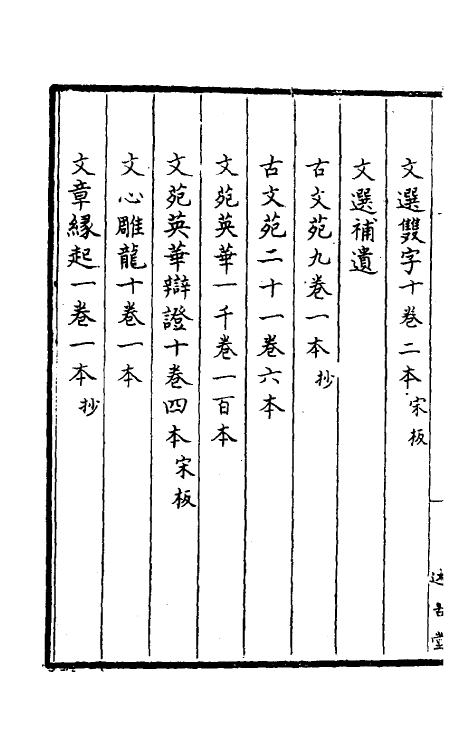 文選雙字十卷二本宋板
文選補遺
古文苑九卷一本抄
古文苑二十一卷六本
文苑英華一千卷一百本
文苑英華辯證十卷四本宋板
文心雕龍十卷一本
文章緣起一卷一本抄
述古堂